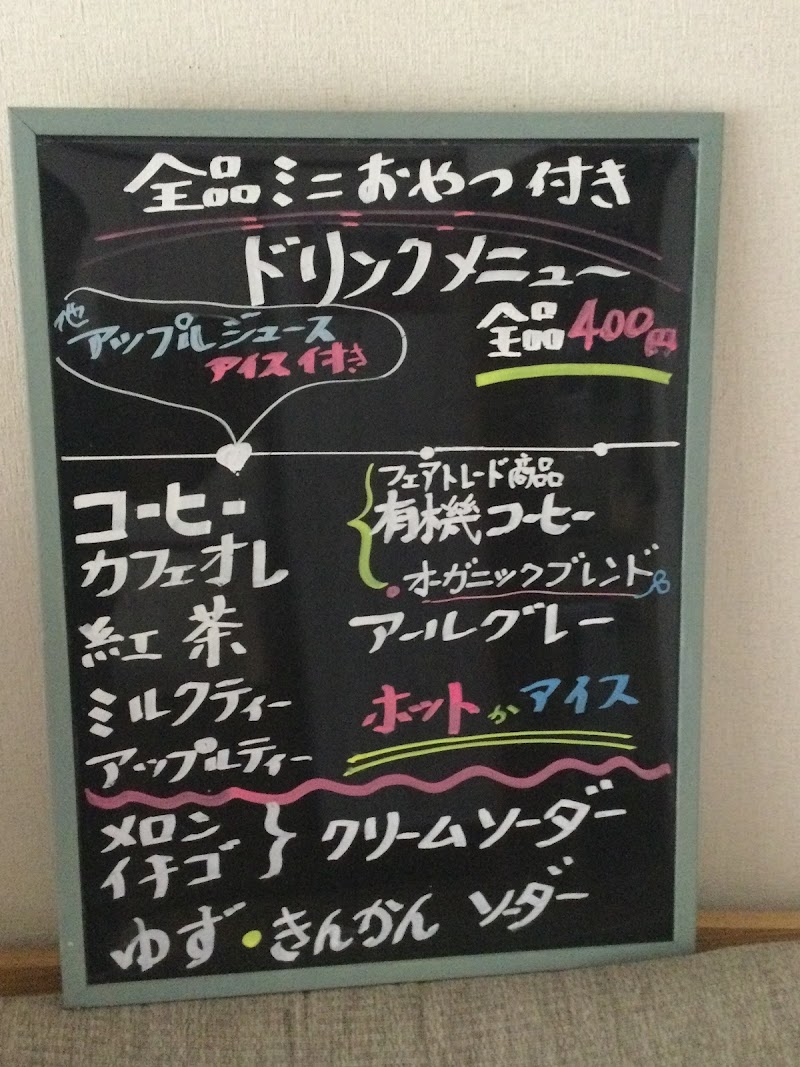 全品ミニおやつ付き
ドリンクメニュー
他
アップルジュース
アイス付き
全品400円
コーヒー
カフェオレ
紅茶
ミルクティー
アップルティー
フェアトレード商品
有機コーヒー
・オーガニックブレンド
アールグレー
ホットかアイス
メロン
イチゴ
クリームソーダー
ゆず・きんかん ソーダー